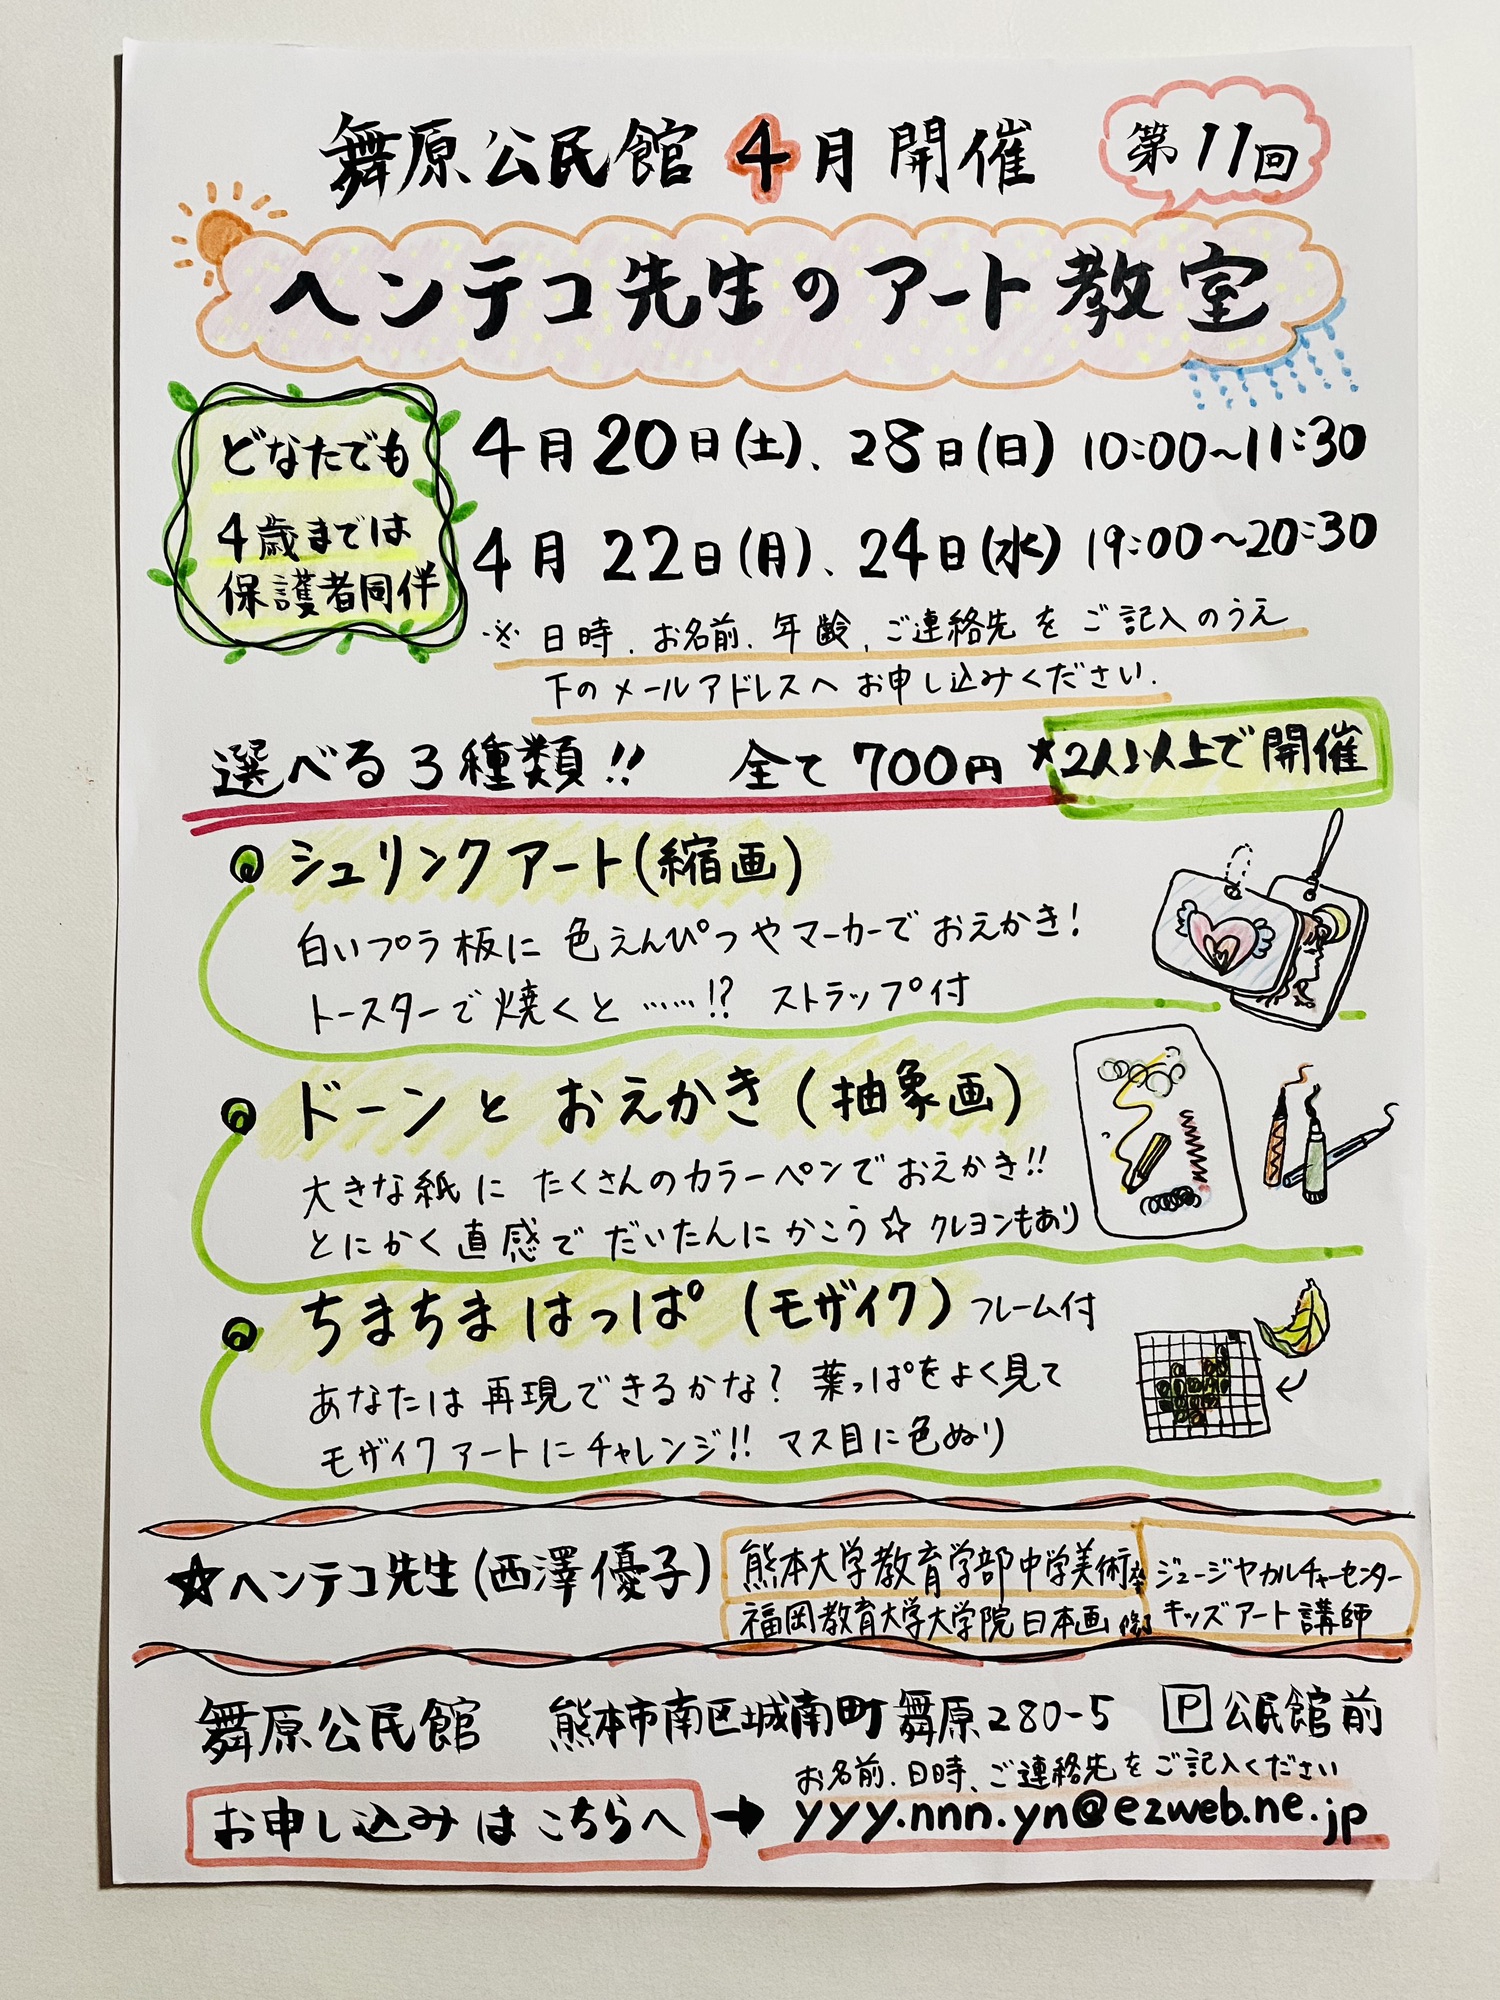 舞原公民館 4月開催
第11回
ヘンテコ先生のアート教室
どなたでも
4歳までは
保護者同伴
4月20日(土)、28日(日) 10:00～11:30
4月22日(月)、24日(水) 19:00～20:30
※日時、お名前、年齢、ご連絡先をご記入のうえ
下のメールアドレスへお申し込みください.
選べる3種類!! 全て700円 ★2人以上で開催
シュリンクアート(縮画)
白いプラ板に色えんぴつやマーカーでおえかき!
トースターで焼くと……!? ストラップ付
ドーンとおえかき(抽象画)
大きな紙にたくさんのカラーペンでおえかき!!
とにかく直感でだいたんにかこう☆ クレヨンもあり
ちまちまはっぱ(モザイク) フレーム付
あなたは再現できるかな? 葉っぱをよく見て
モザイクアートにチャレンジ!! マス目に色ぬり
★ヘンテコ先生(西澤優子)
熊本大学教育学部中学美術卒
福岡教育大学大学院日本画
ジュージヤカルチャーセンター
キッズアート講師
舞原公民館 熊本市南区城南町舞原280-5 P 公民館前
お名前、日時、ご連絡先をご記入ください
お申し込みはこちらへ → yyy.nnn.yn@ezweb.ne.jp